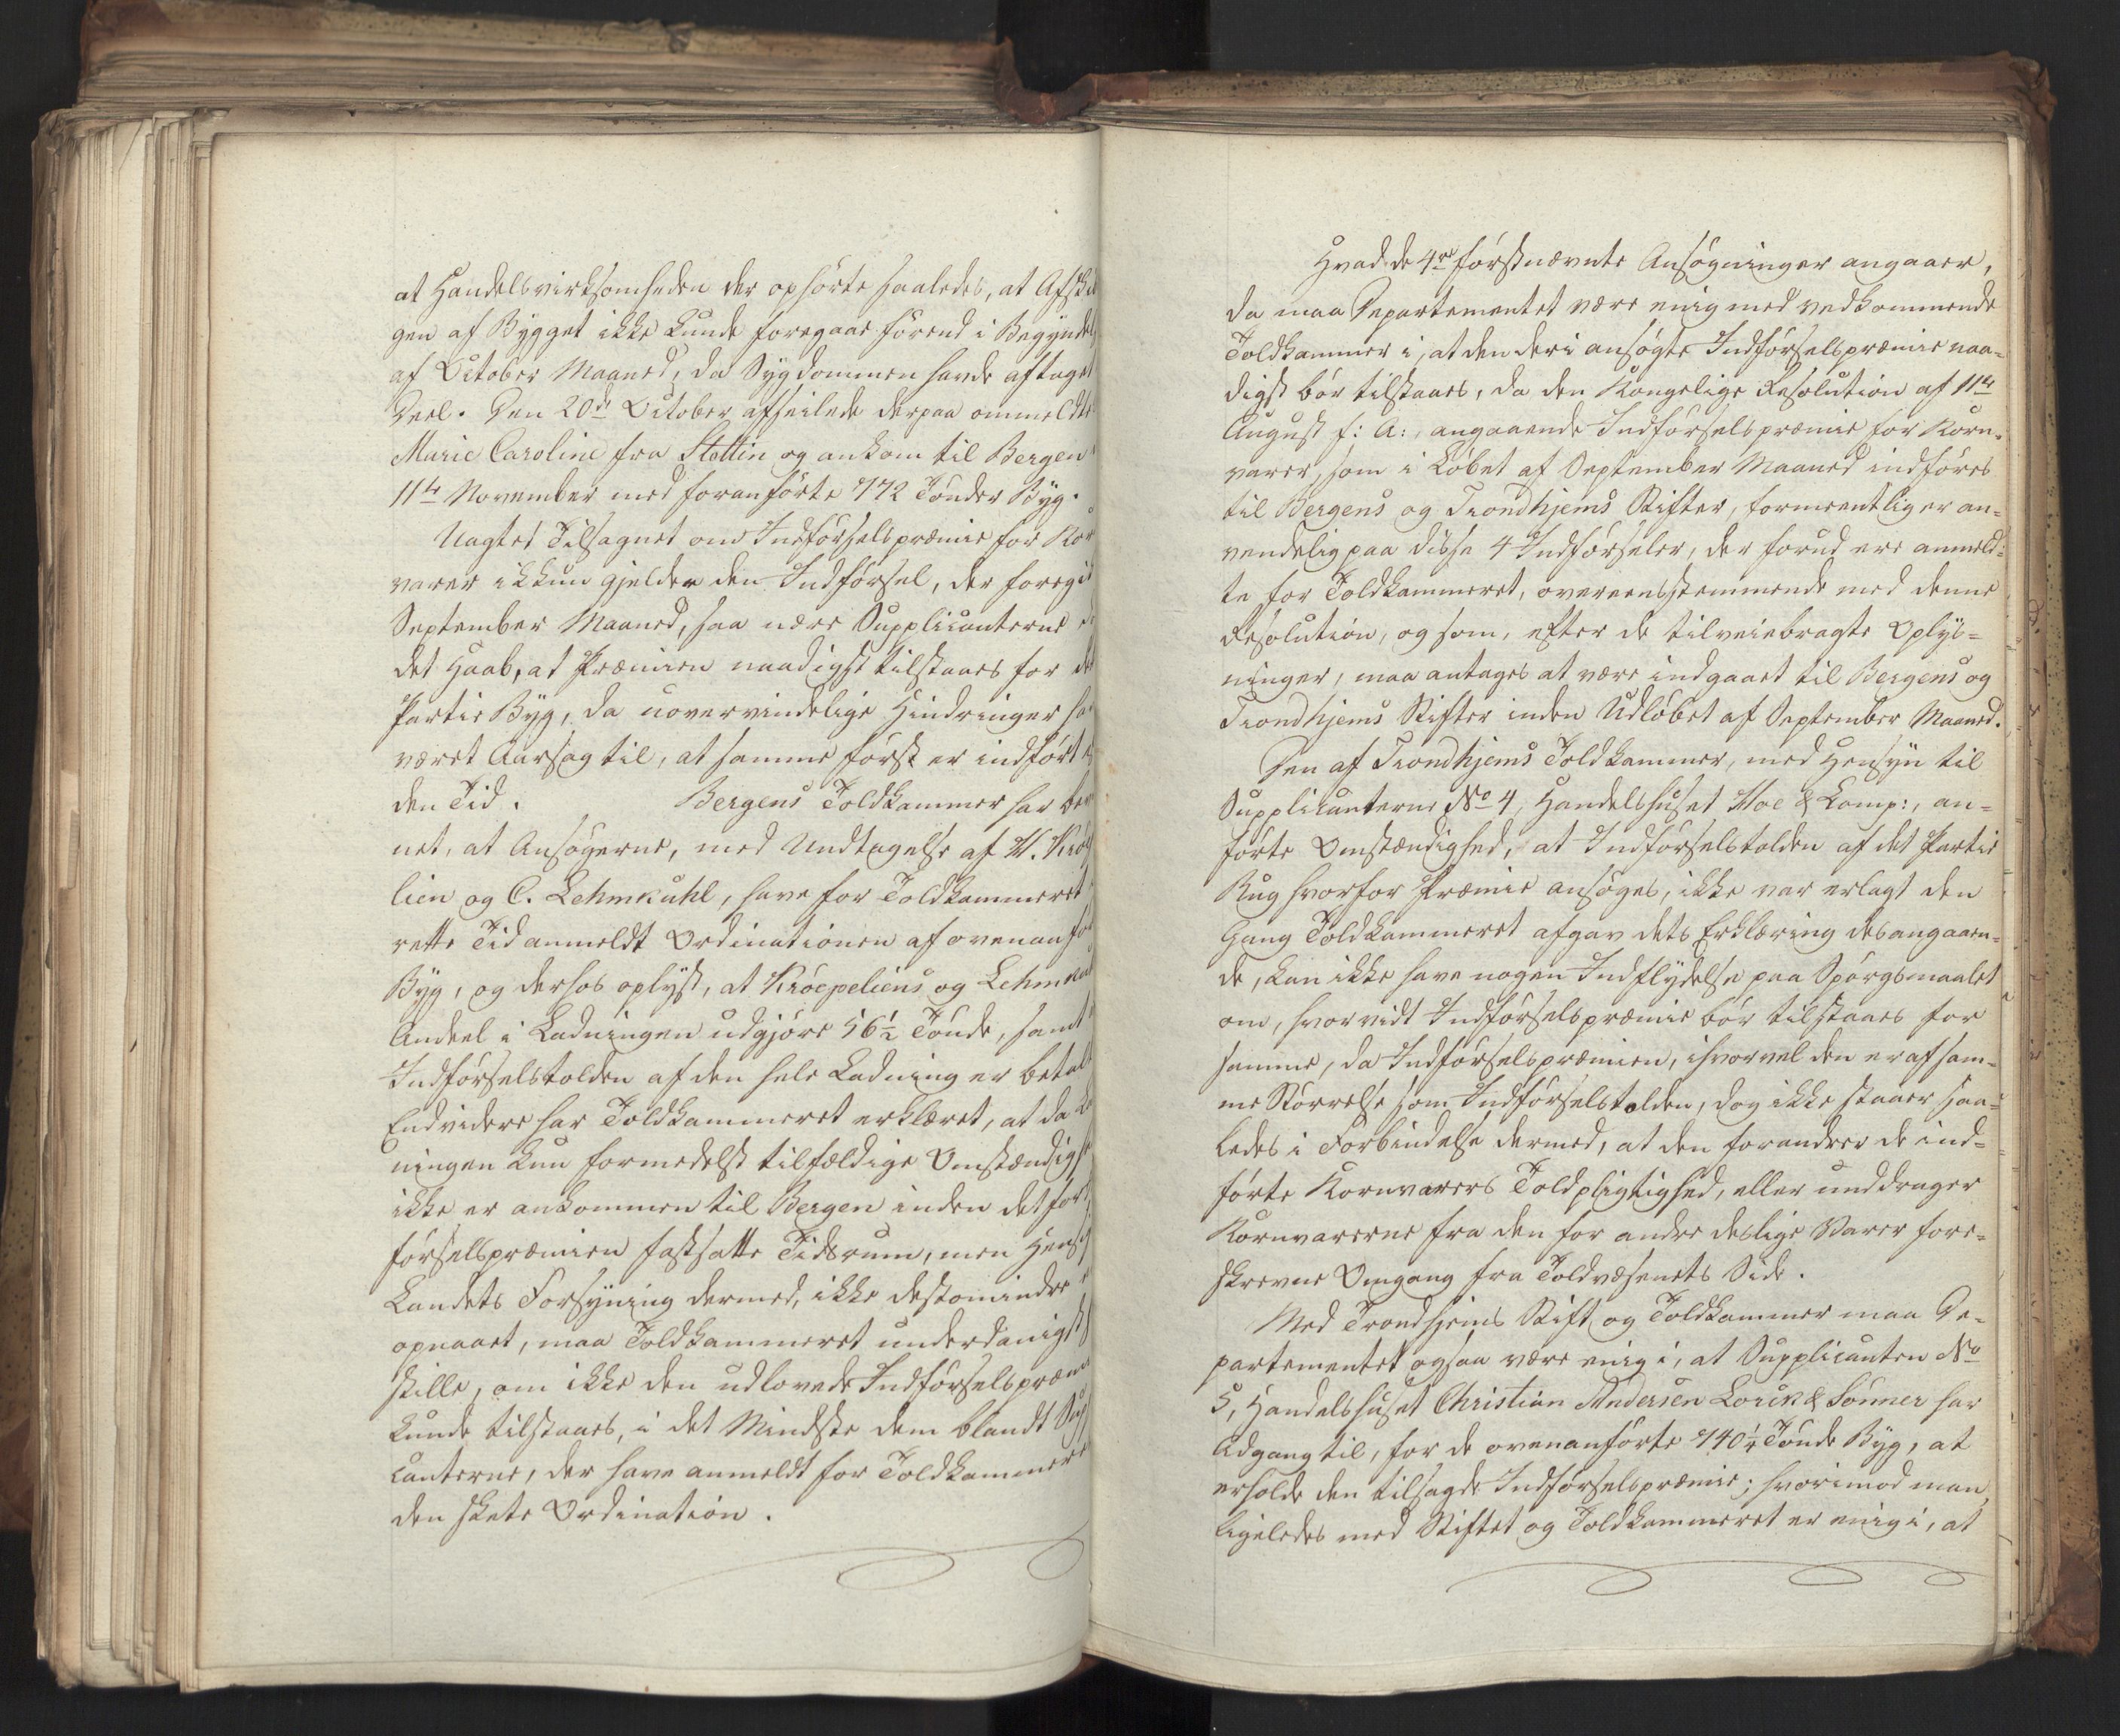 at Handelsvirksomheden der ophörte saaledes, at Afski
gen af Bygget ikke kunde foregaae förend i Begyndel
af October Maaned, da Sygdommen havde aftaget
Deel. Den 20de October afseilede derpaa ommeldte
Marie Caroline fra Stettin og ankom til Bergen
11te November med foranförte 772 Tönder Byg.
Uagtet Tilsagnet om Indförselspræmie for Kor
varer ikkun gjelder den Indförsel, der foregik
September Maaned, saa nære Supplicanterne
det Haab, at Præmien naadigst tilstaaes for det
Partie Byg, da uovervindelige Hindringer ha
været Aarsag til, at samme först er indfört e
den Tid. Bergens Toldkammer har be
net, at Ansögerne, med Undtagelse af H. Kröe
lien og C. Lehmkuhl, have for Toldkammeret
rette Tid anmeldt Ordinationen af ovenanför
Byg, og derhos oplyst, at Kröepeliens og Lehmkuh
Andeel i Ladningen udgjöre 56½ Tönde, samt
Indförselstolden af den hele Ladning er betalt
Endvidere har Toldkammeret erklæret, at da La
ningen kun formedelst tilfældige Omstændighe
ikke er ankommen til Bergen inden det for
förselspræmien fastsatte Tidsrum, men Hensig
Landets Forsyning dermed, ikke destomindre e
opnaaet, maa Toldkammeret underdanigst
stille, om ikke den udlovede Indförselspræm
kunde tilstaaes, i det Mindste dem blandt Sup
canterne, der have anmeldt for Toldkammere
den skete Ordination.
Hvad de 4re förstnævnte Ansögninger angaaer,
da maa Departementet være enig med vedkommende
Toldkammer i, at den deri ansögte Indförselspræmie naa-
digst bör tilstaaes, da den Kongelige Resolution af 11te
August f: A:, angaaende Indförselspræmie for Korn-
varer, som i Löbet af September Maaned indföres
til Bergens og Trondhjems Stifter, formeentlig er an-
vendelig paa disse 4 Indförseler, der forud ere anmeld-
te for Toldkammeret, overeensstemmende med denne
Resolution, og som, efter de tilveiebragte Oplys-
ninger, maa antages at være indgaaet til Bergens og
Trondhjems Stifter inden Udlöbet af September Maaned.
Den af Trondhjems Toldkammer, med Hensyn til
Supplicanterne No 4, Handelshuset Hoe & Comp:, an-
förte Omstændighed, at Indförselstolden af det Partie
Rug hvorfor Præmie ansöges, ikke var erlagt den
Gang Toldkammeret afgav dets Erklæring desangaaen-
de, kan ikke have nogen Indflydelse paa Spörgsmaalet
om, hvorvidt Indförselspræmie bör tilstaaes for
samme, da Indförselspræmien, ihvorvel den er af sam-
me Störrelse som Indförselstolden, dog ikke staaer saa-
ledes i Forbindelse dermed, at den forandrer de ind-
förte Kornvarers Toldpligtighed, eller unddrager
Kornvarerne fra den for andre deslige Varer fore-
skrevne Omgang fra Toldvæsenets Side.
Med Trondhjems Stift og Toldkammer maa De-
partementet ogsaa være enig i, at Supplicanten No
5, Handelshuset Christian Andersen Lorck & Sönner har
Adgang til, for de ovenanförte 140¼ Tönde Byg, at
erholde den tilsagde Indförselspræmie; hvorimod man
ligeledes med Stiftet og Toldkammeret er enig i, at